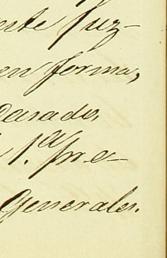 ente juz-
en forma,
parado
1.ª pre-
Generales.